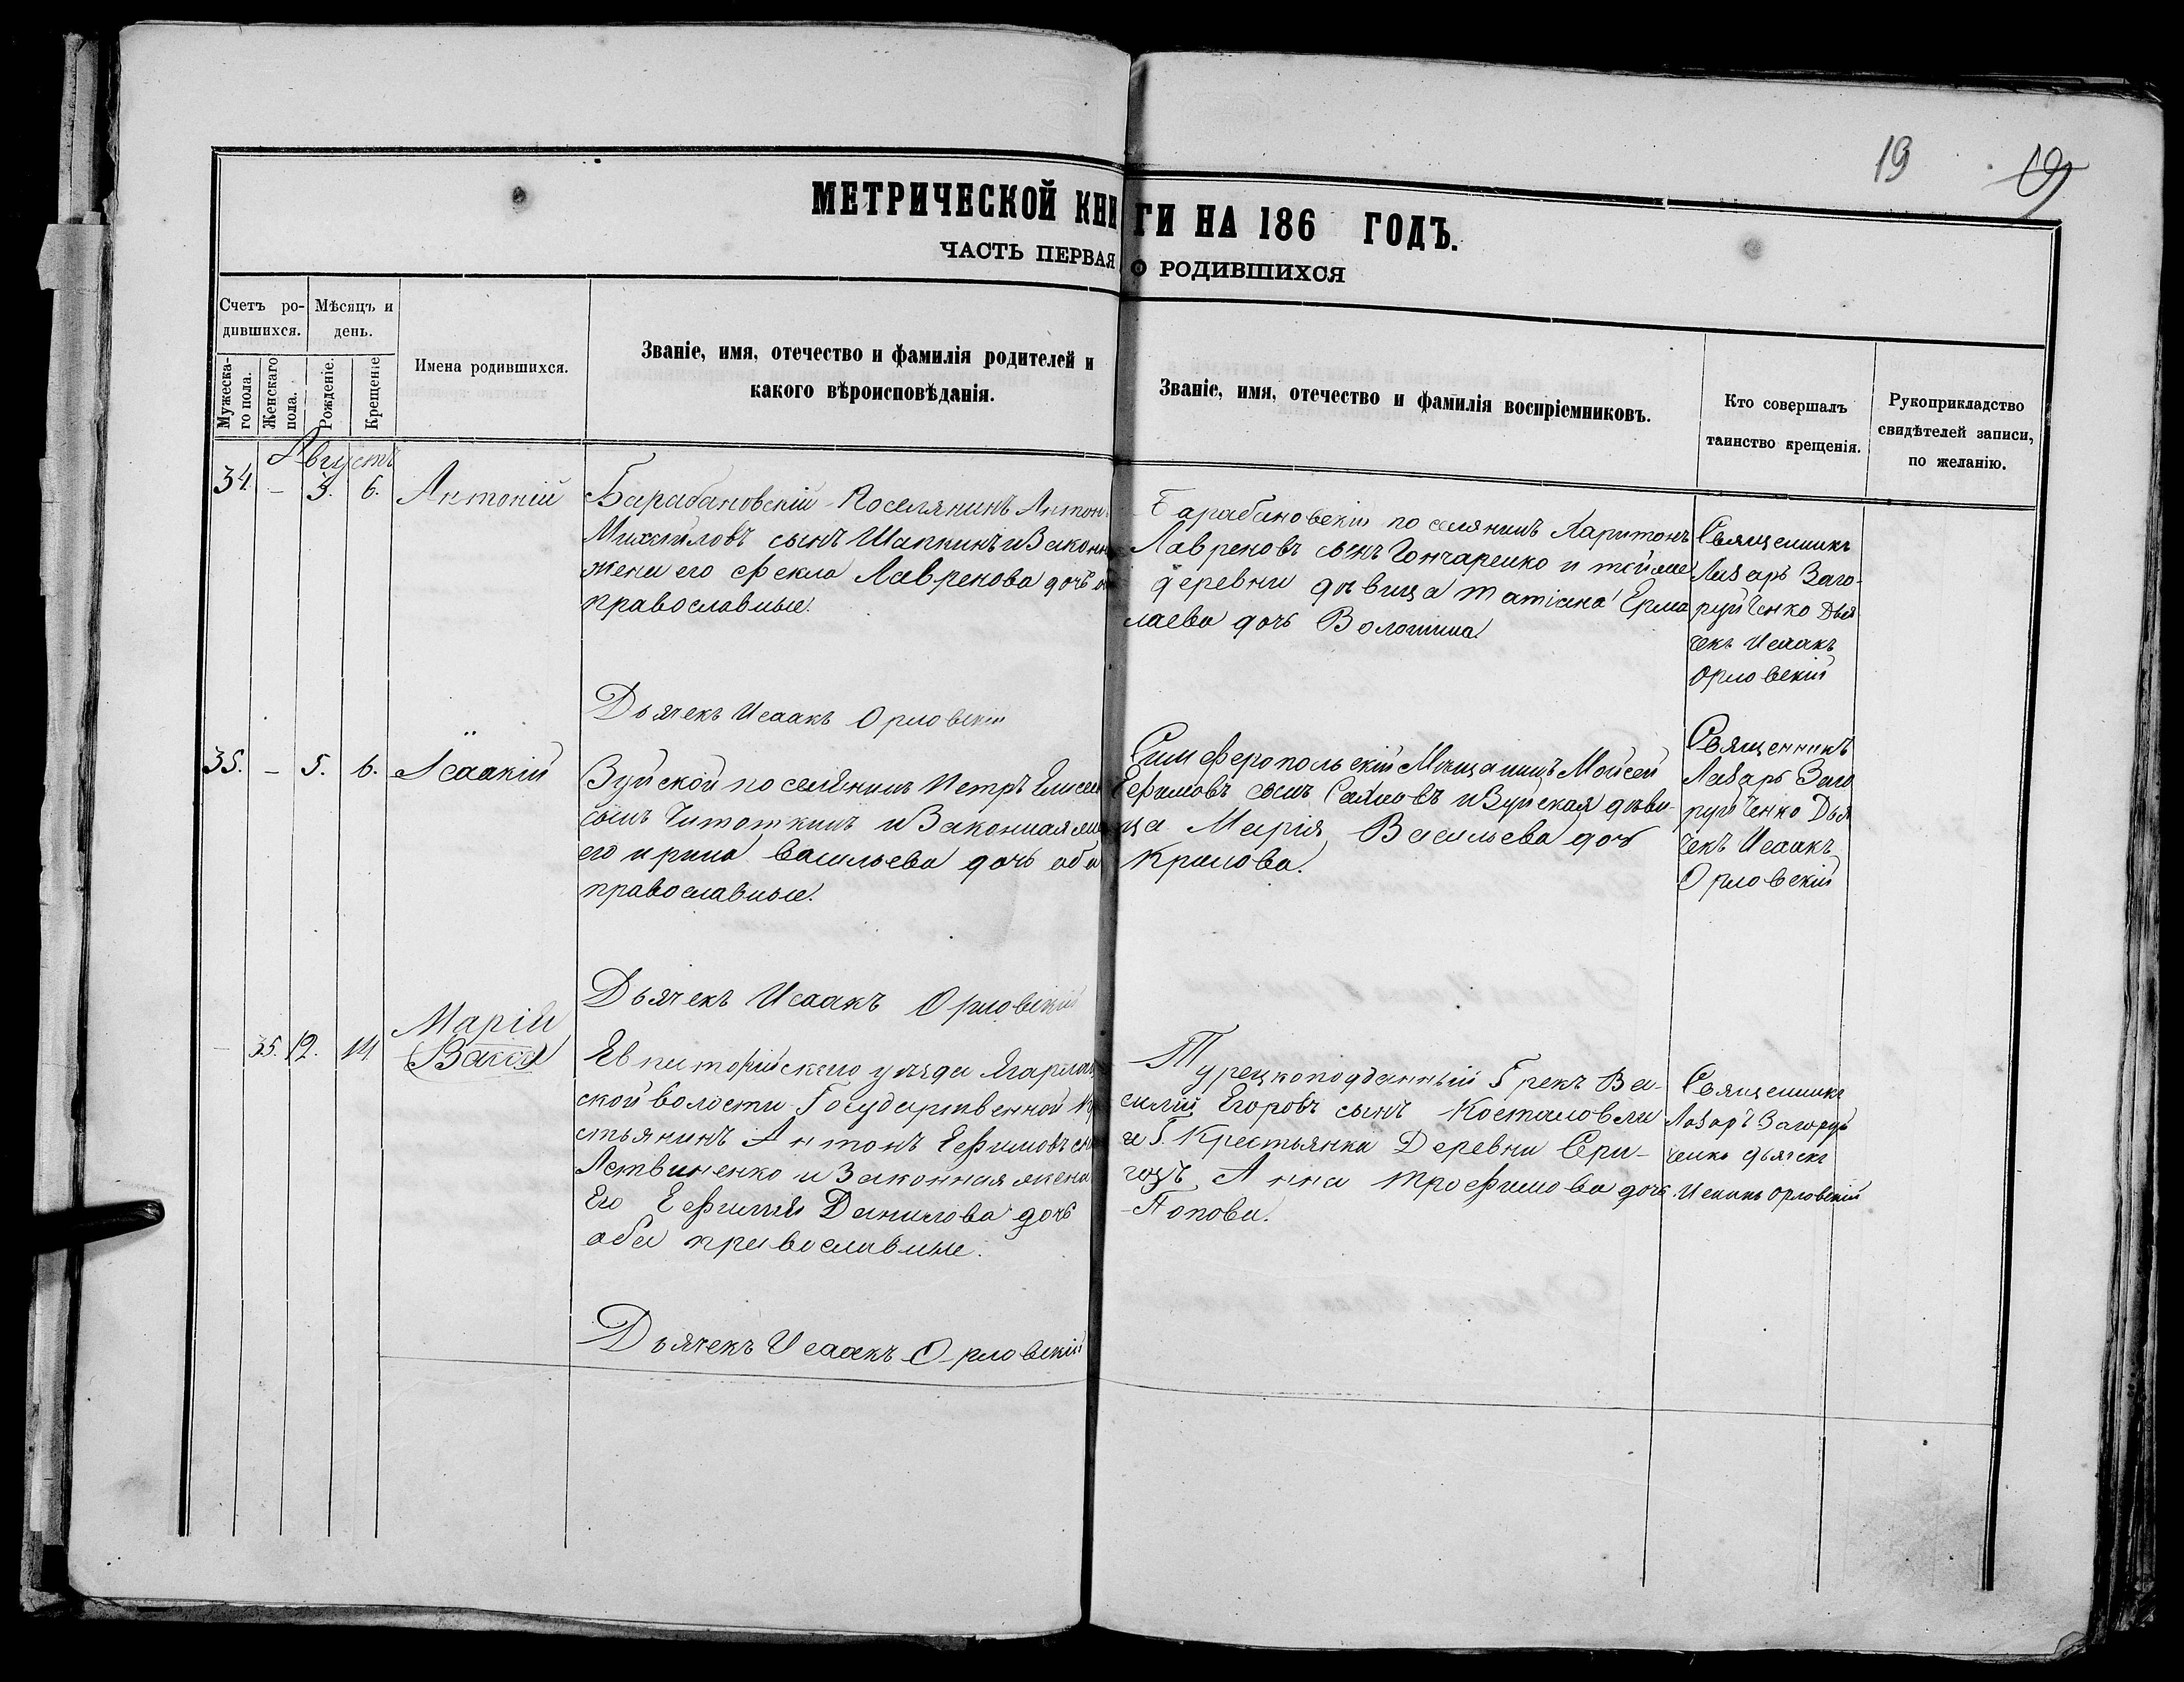 19 19
МЕТРИЧЕСКОЙ КНИГИ НА 186 ГОДЪ.
ЧАСТЬ ПЕРВАЯ О РОДИВШИХСЯ
Счетъ ро-
дившихся.
Мѣсяцъ и
день.
Мужеска-
го пола.
Женскаго
пола.
Рожденіе.
Крещеніе
Имена родившихся.
Званіе, имя, отечество и фамилія родителей и
какого вѣроисповѣданія.
Званіе, имя, отечество и фамилія воспріемниковъ.
Кто совершалъ
таинство крещенія.
Рукоприкладство
свидѣтелей записи,
по желанію.
Августъ
34 – 3. 6. Антоній
Барабановскій Поселянинъ Антон
Михайловъ сынъ Шапкинъ и Законн
жена его Фекла Лавренова дочь
православные.
Барабановскій поселянинъ Харитонъ
Лавреновъ сынъ Гончаренко и тойже
деревни дѣвица татіана Ерма
лаева дочь Волошина
Священникъ
Лазарь Заго-
руйченко Дья
чекъ Исаакъ
Орловскій
Дьячекъ Исаакъ Орловскій
35. – 5. 6. Ісаакій
Зуйской поселянинъ Петръ Елисеи
сынъ Читоткинъ и Законная
его ирина васильева дочь оба
православные.
Симферопольскій Мѣщанинъ Мойсей
Ефимовъ сынъ и Зуйская дѣви-
ца Марія Васильева доч
Крилова.
Священникъ
Лазарь Заго
руйченко Дья
чекъ Исаакъ
Орловскій
Дьячекъ Исаакъ Орловскій
– 35. 12. 14
Марія
Васса
Евпаторійскаго уѣзда
ской волости Государственной
стьянинъ Антонъ Ефимовъ
Литвиненко и Законная жена
Его Ефимія Данилова дочь
оба православные.
Турецкоподданный Грекъ Ва-
силій Егоровъ сынъ
и Г. Крестьянка Деревни Сари-
Анна трофимова дочь
Попова.
Священникъ
Лазарь Загоруй
ченко дьячекъ
Исаакъ Орловскій
Дьячекъ Исаакъ Орловскій